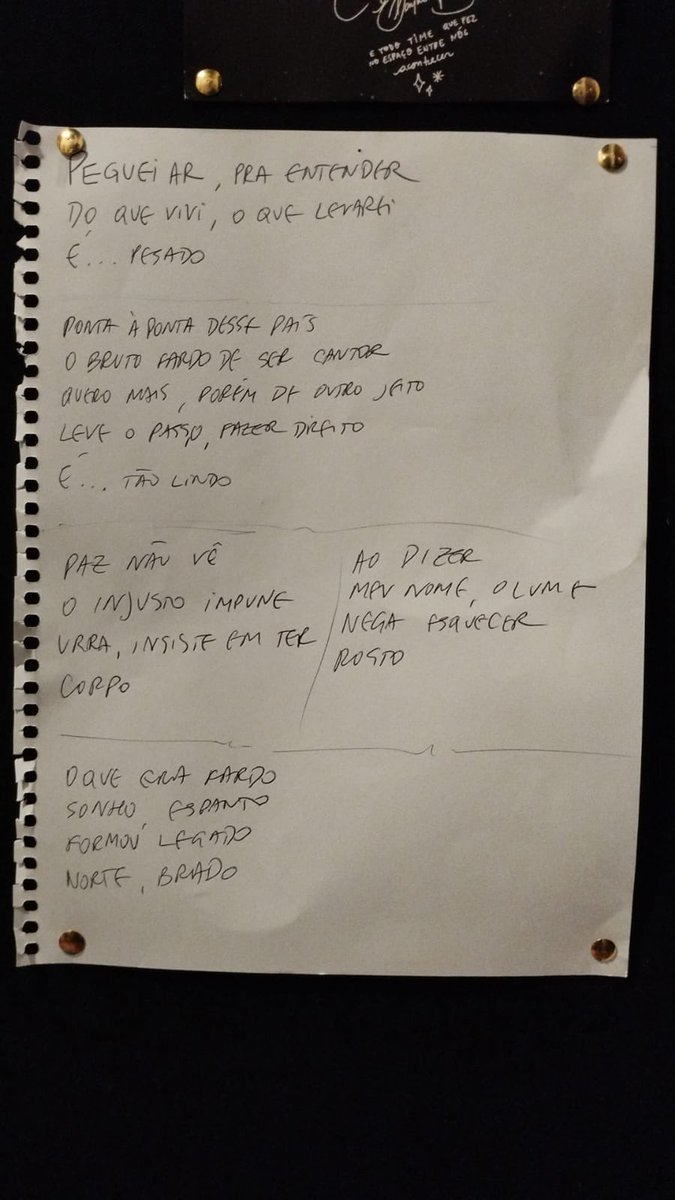 E TODO TIME QUE FEZ
NO ESPAÇO ENTRE NÓS
acontecer
PEGUEI AR, PRA ENTENDER
DO QUE VIVI, O QUE LEVAREI
É... PESADO
PONTA À PONTA DESSE PAÍS
O BRUTO FARDO DE SER CANTOR
QUERO MAIS, PORÉM DE OUTRO JEITO
LEVE O PASSO, FAZER DIREITO
É... TÃO LINDO
PAZ NÃO VÊ
O INJUSTO IMPUNE
URRA, INSISTE EM TER
CORPO
AO DIZER
MEU NOME, O LUME
NEGA ESQUECER
ROSTO
O QUE ERA FARDO
SONHO, ESPANTO
FORMOU LEGADO
NORTE, BRADO